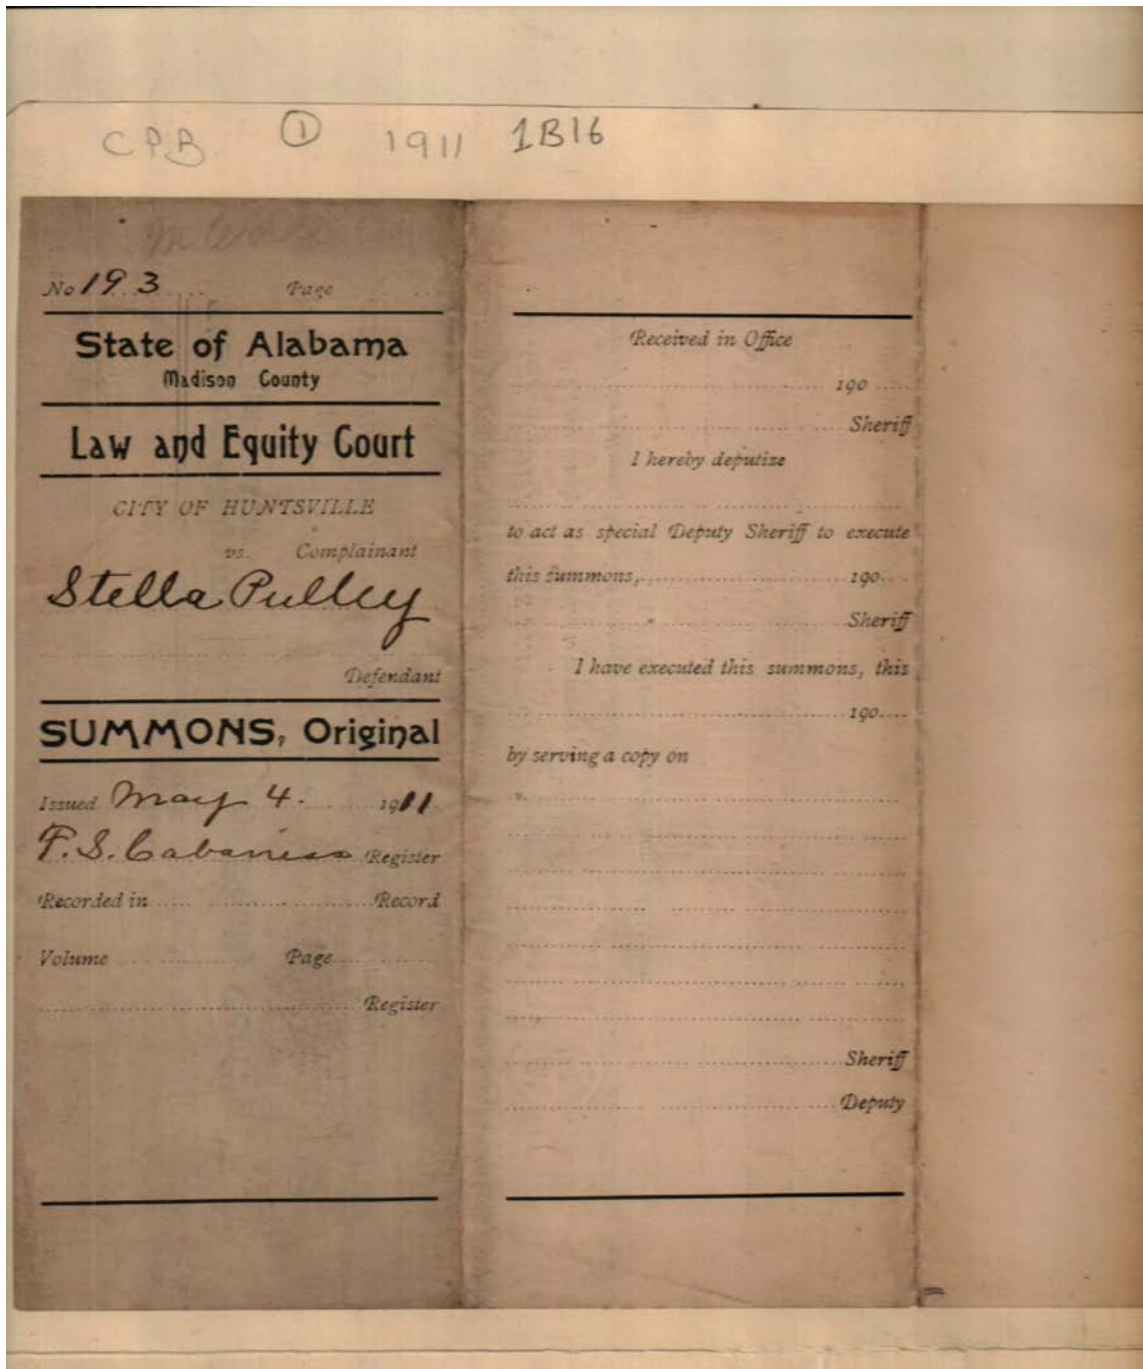 CPB ① 1911 1B16
No 193 Page
State of Alabama
Madison County
Law and Equity Court
CITY OF HUNTSVILLE
vs. Complainant
Stella Pulley
Defendant
SUMMONS, Original
Issued May 4. 1911
F.S. Cabaniss Register
Recorded in Record
Volume Page
Register
Received in Office
190
Sheriff
I hereby deputize
to act as special Deputy Sheriff to execute
this summons, 190
Sheriff
I have executed this summons, this
190
by serving a copy on
Sheriff
Deputy